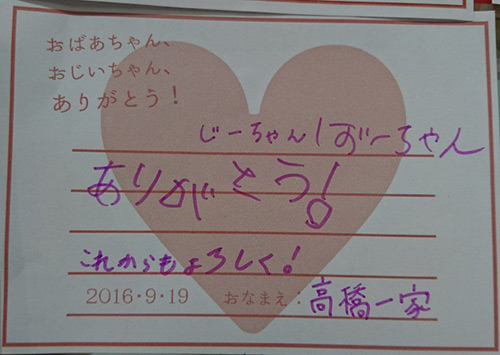 おばあちゃん、
おじいちゃん、
ありがとう!
じーちゃん!ばーちゃん
ありがとう!
これからもよろしく!
2016・9・19 おなまえ:高橋一家